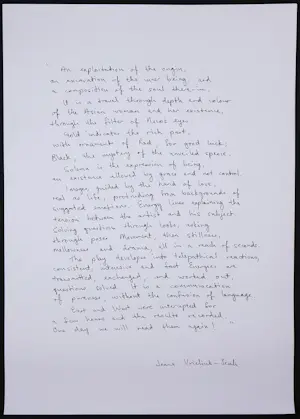 " An exploitation of the organ,
an excavation of the inner being and
a composition of the soul therein.
It is a travel through depth and colour
of the Asian woman and her existence,
through the filter of Rosa's eyes.
Gold indicates the rich past,
with movement of Red, for good luck;
Black, the mystery of the unveiled space.
Colour is the expression of being,
an existence allowed by grace and not control.
Images, guided by the hand of love,
real as life, protruding from backgrounds of
suggested emotions. Energy lines explaining the
tension between the artist and his subject.
Solving questions through looks, acting
through poses. Movement, then stillness,
mellowness and drama, all in a reach of seconds.
The play develops into telepathical reactions,
consistent, intensive and fast. Energies are
transmitted, exchanged, and worked out,
questions solved. It is a communication
of presence, without the confusion of language.
East and West were interrupted for
a few hours and the results recorded.
One day we will need them again! "